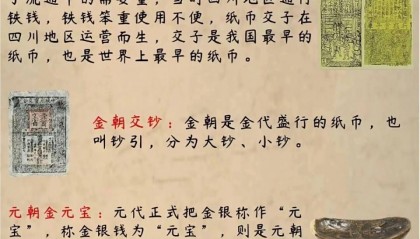 铁钱，铁钱笨重使用不便，纸币交子在
四川地区运营而生，交子是我国最早的
纸币，也是世界上最早的纸币。
金朝交钞：金朝是金代盛行的纸币，也
叫钞引，分为大钞、小钞。
元朝金元宝：元代正式把金银称作“元
宝”，称金银钱为“元宝”，则是元朝